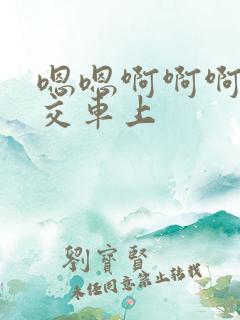 嗯嗯啊啊啊
交车上
劉寶賢
未经同意禁止转载